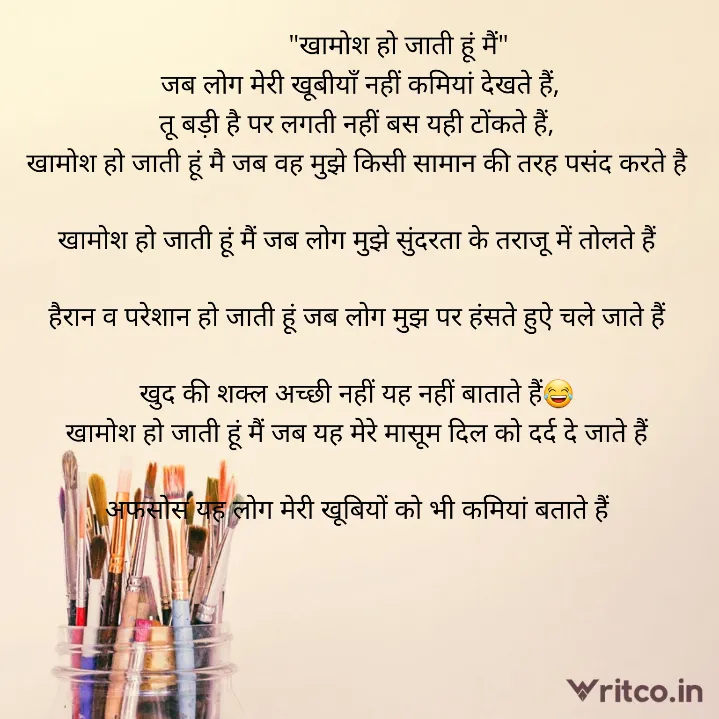 "खामोश हो जाती हूं मैं"
जब लोग मेरी खूबीयाँ नहीं कमियां देखते हैं,
तू बड़ी है पर लगती नहीं बस यही टोंकते हैं,
खामोश हो जाती हूं मै जब वह मुझे किसी सामान की तरह पसंद करते है
खामोश हो जाती हूं मैं जब लोग मुझे सुंदरता के तराजू में तोलते हैं
हैरान व परेशान हो जाती हूं जब लोग मुझ पर हंसते हुऐ चले जाते हैं
खुद की शक्ल अच्छी नहीं यह नहीं बाताते हैं😂
खामोश हो जाती हूं मैं जब यह मेरे मासूम दिल को दर्द दे जाते हैं
अफसोस यह लोग मेरी खूबियों को भी कमियां बताते हैं
Writco.in